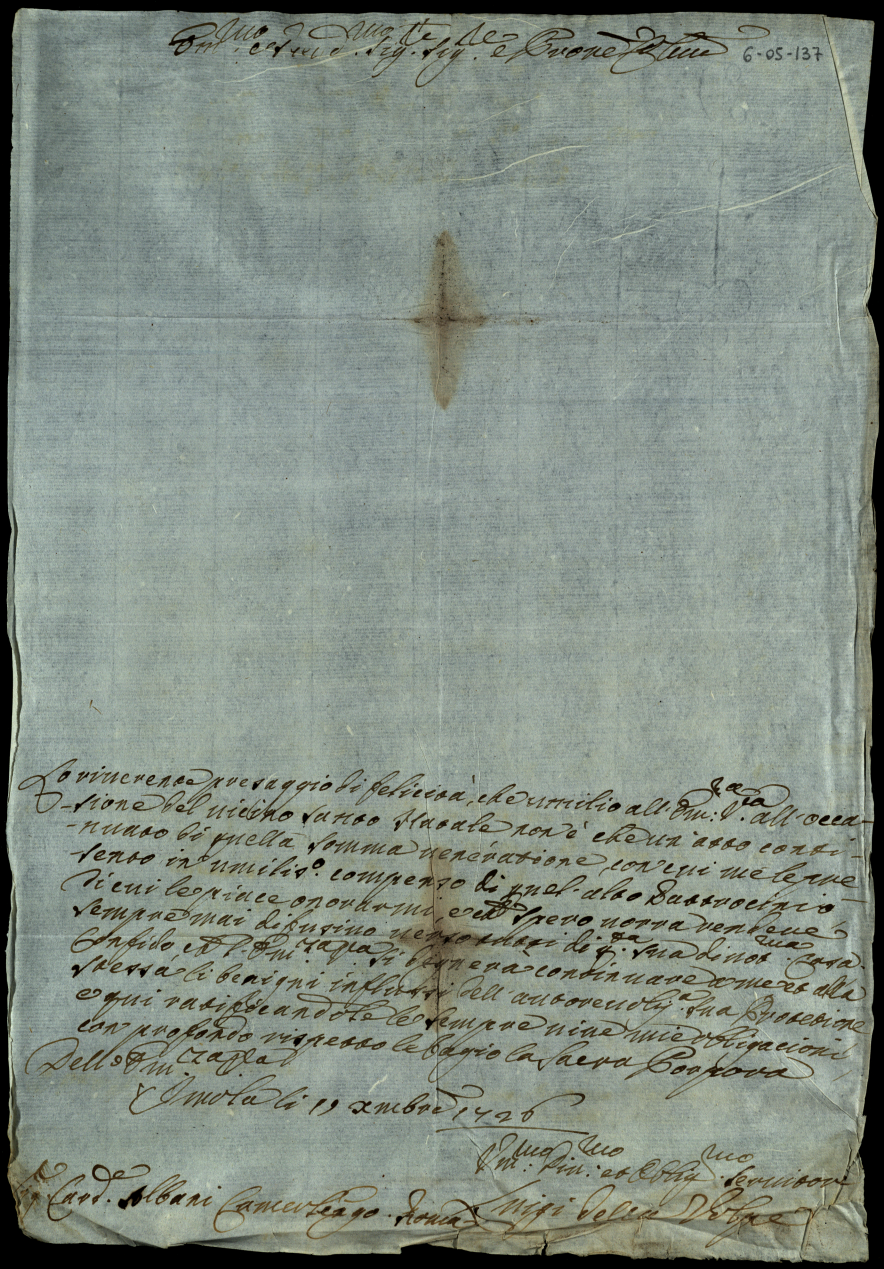 Em.mo e Rev.mo Sig. Sig.re e Prone
6-05-137
Lo riverente presaggio di felicità, che umilio all'Em.za V.ra all'occa-
-sione del vicino Santo Natale non è che un'atto conti-
-nuato di quella somma veneratione, con cui me le pre-
-sento in umiliss.o compenso di quel alto Pattrocinio
di cui le piace onorarmi, e che spero vorrà rendere
sempre mai diffusivo verso tutti di q.ta sua divot.ma Casa.
Confido che l'Em.za V.ra si degnerà continuare a me et alla
stessa li benigni influssi dell'autorevoliss.a sua Protetione
e qui ratificandole le sempre vive mie obligationi
con profondo rispetto le bagio la Sacra Porpora
Dell'Em.za V.ra
Imola li 19 Xmbre 1726
Um.mo Div.mo et Oblig.mo Servitore
Sig. Card.e Albani Camerlengo. Roma
Luigi della Volpe